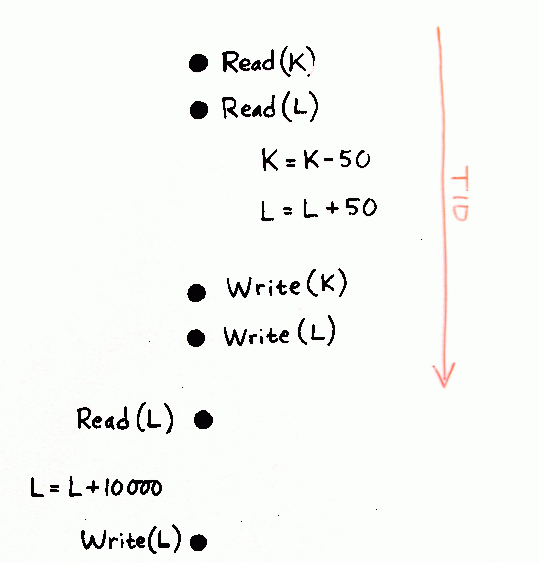 Read(K)
Read(L)
K = K-50
L = L + 50
TID
Write(K)
Write(L)
Read(L)
L = L+10000
Write(L)